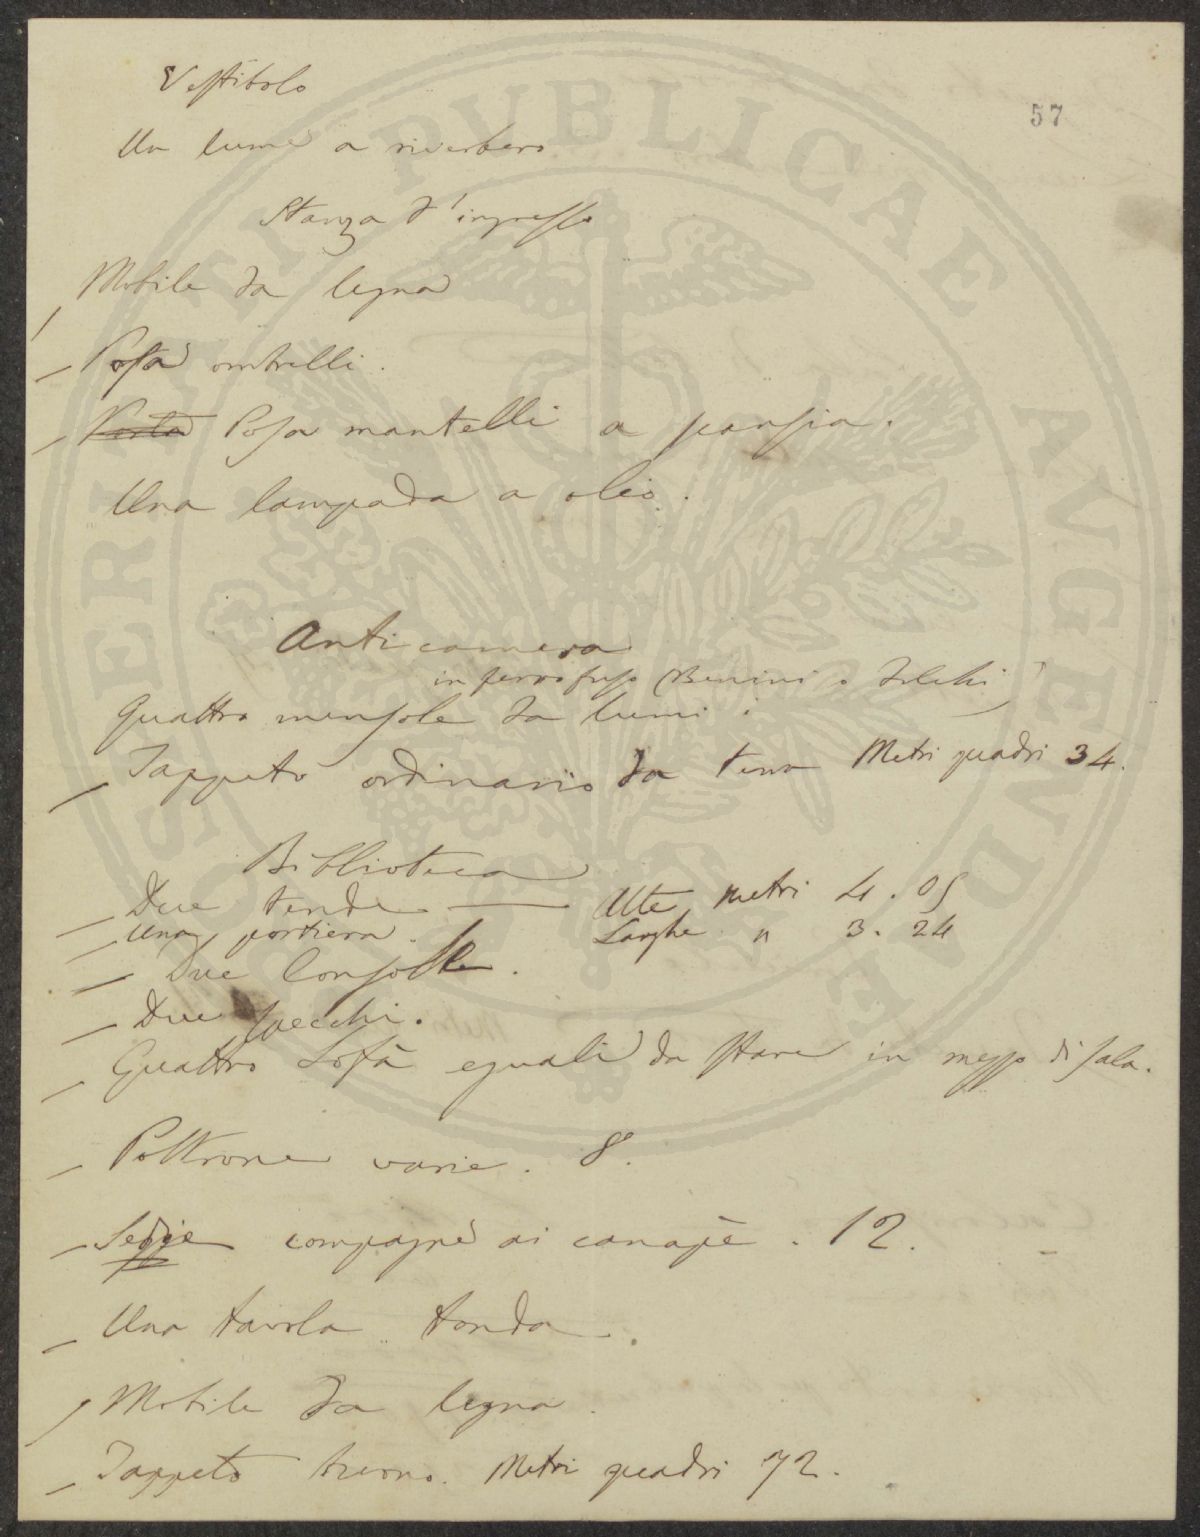 Vestibolo
57
Un lume a riverbero
Stanza d'ingresso
Mobile da legna
Posa ombrelli.
Posa mantelli a
Una lampada a olio.
Anticamera
in ferro fuso (Benini o
Quattro mensole da lumi
Tappeto ordinario da Metri quadri 34.
Biblioteca
Due tende — Alte metri 4.05
Una portiera. Larghe " 3.24
Due Consolle.
Due specchi.
Quattro Sofà eguali da stare in mezzo di sala.
Poltrone varie. 8.
Seggie compagne ai canapè. 12.
Una tavola tonda.
Mobile da legna.
Tappeto buono. Metri quadri 72.
PROSPERITATI PVBLICAE AVGENDAE